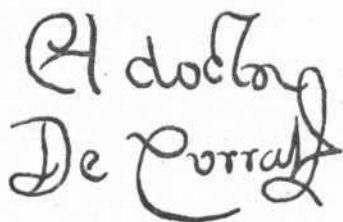 El doctor
De Corral